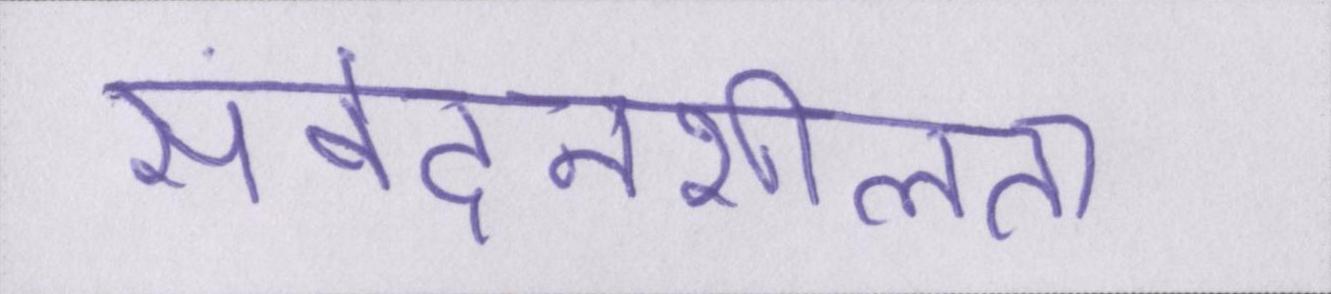 संवेदनशीलता